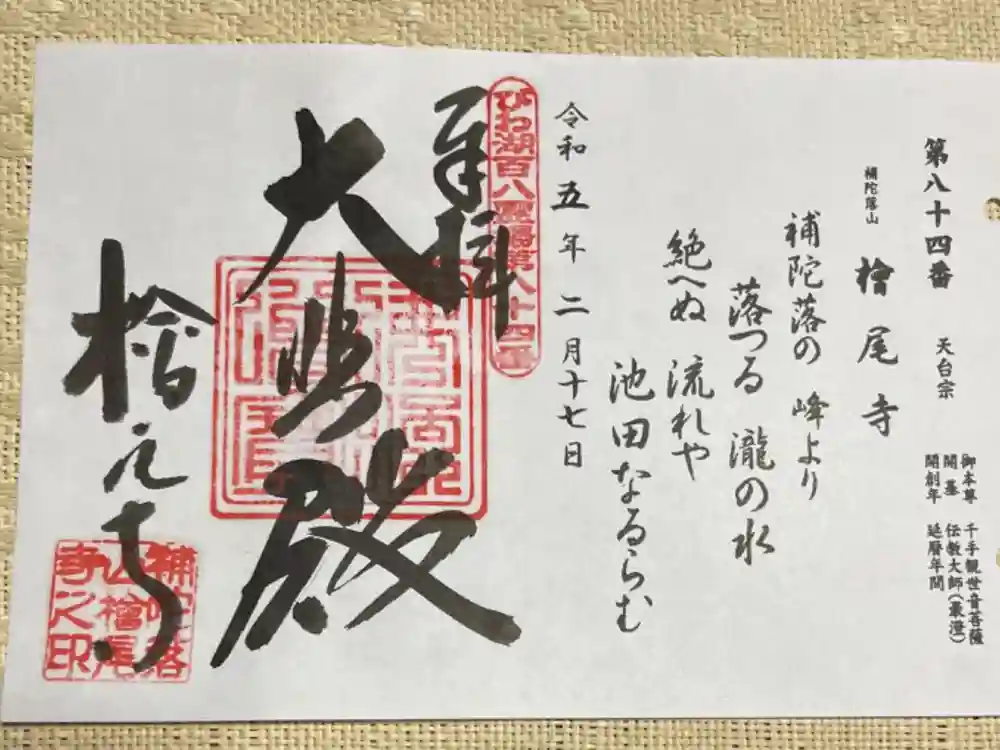 第八十四番 天台宗
御本尊 千手観世音菩薩
開基 伝教大師(最澄)
開創年 延暦年間
補陀落山
檜尾寺
補陀落の 峰より
落つる 瀧の水
絶へぬ 流れや
池田なるらむ
令和五年二月十七日
びわ湖百八霊場第八十四番
奉拝
大悲殿
檜尾寺
補陀落
山檜尾
寺之印